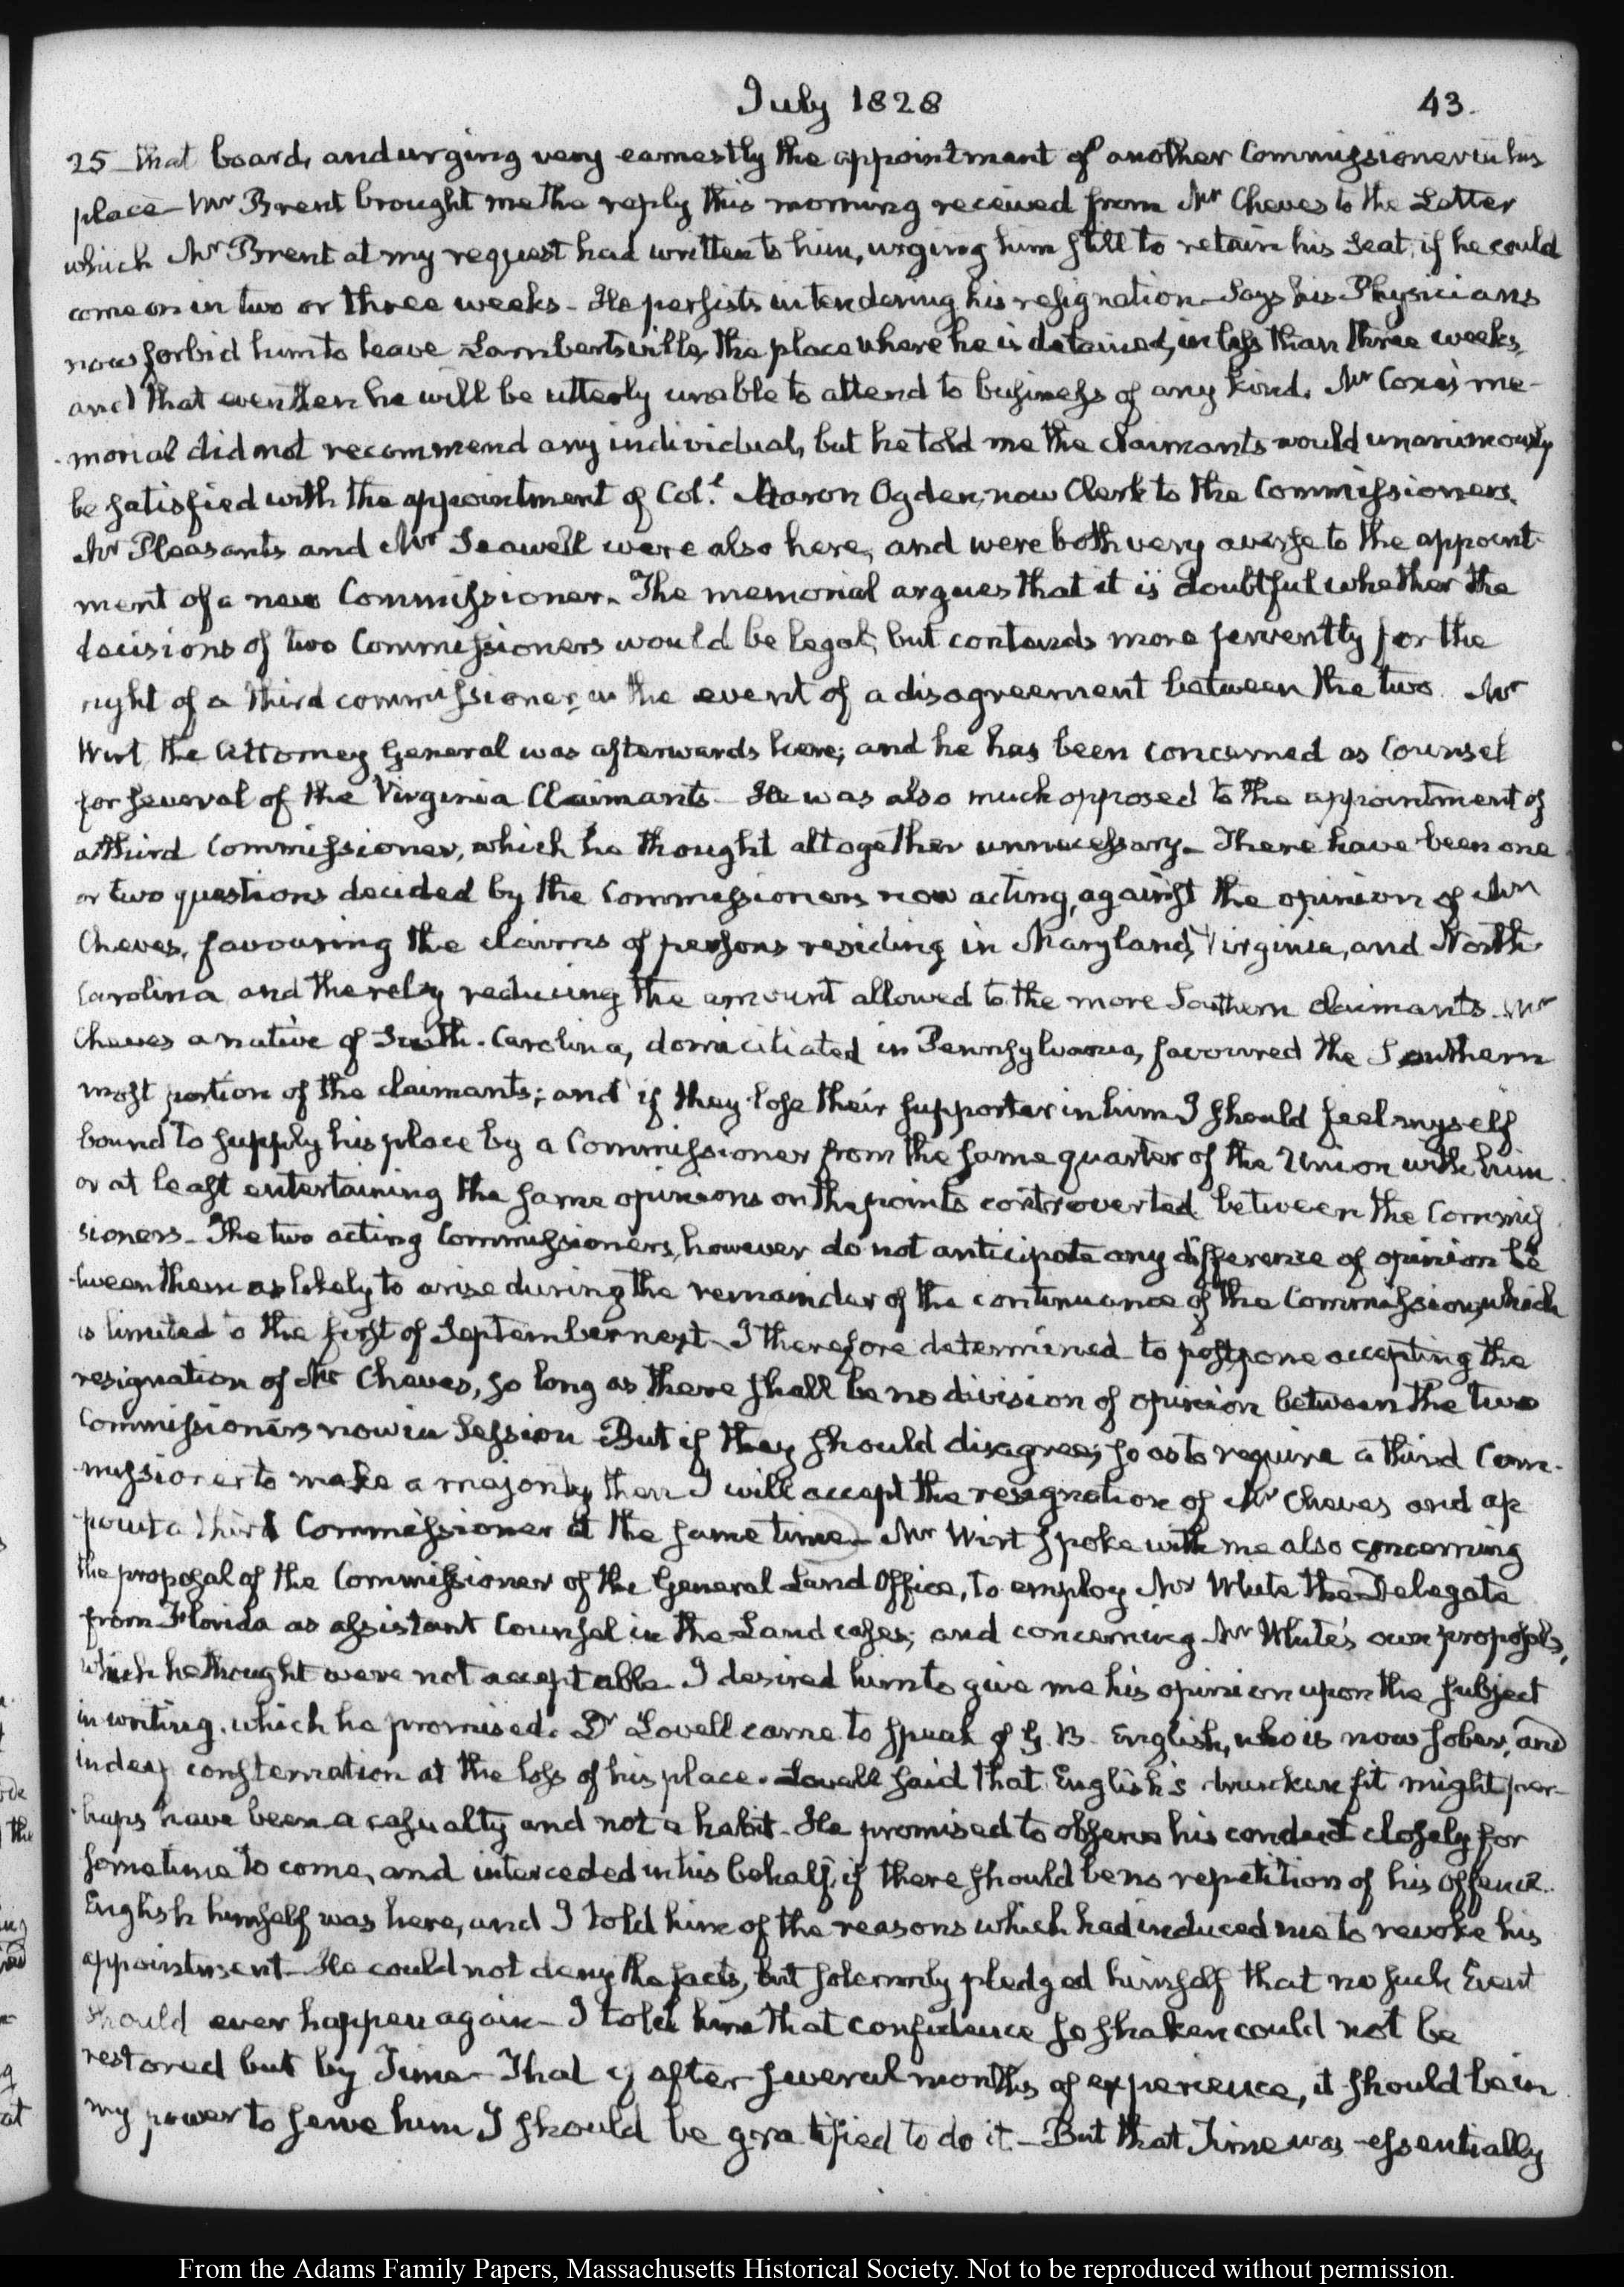 July 1828
43.
25 that board, and urging very earnestly the appointment of another Commissioner in his
place – Mr Brent brought me the reply this morning received from Mr Cheves to the Letter
which Mr Brent at my request had written to him, urging him still to retain his Seat, if he could
come on in two or three weeks – He persists in tendering his resignation – Says his Physicians
now forbid him to leave Lambertsville, the place where he is detained, in less than three weeks,
and that even then he will be utterly unable to attend to business of any kind. Mr Coxe's me-
morial did not recommend any individual, but he told me the claimants would unanimously
be satisfied with the appointment of Col.l Aaron Ogden, now Clerk to the Commissioners.
Mr Pleasants and Mr Seawell were also here, and were both very averse to the appoint-
ment of a new Commissioner. The memorial argues that it is doubtful whether the
decisions of two Commissioners would be legal, but contends more fervently for the
right of a third commissioner, in the event of a disagreement between the two. Mr
Wirt the Attorney General was afterwards here; and he has been concerned as Counsel
for several of the Virginia Claimants – He was also much opposed to the appointment of
a third Commissioner, which he thought altogether unnecessary – There have been one
or two questions decided by the Commissioners now acting, against the opinion of Mr
Cheves, favouring the claims of persons residing in Maryland, Virginia, and North
Carolina and thereby reducing the amount allowed to the more Southern claimants. Mr
Cheves a native of South-Carolina, domiciliated in Pennsylvania, favoured the Southern
most portion of the claimants; and if they lose their supporter in him I should feel myself
bound to supply his place by a Commissioner from the same quarter of the Union with him
or at least entertaining the same opinions on the points controverted between the Commis
sioners – The two acting Commissioners, however do not anticipate any difference of opinion be
tween them as likely to arise during the remainder of the continuance of the Commission, which
is limited to the first of September next – I therefore determined to postpone accepting the
resignation of Mr Cheves, so long as there shall be no division of opinion between the two
Commissioners now in Session – But if they should disagree, so as to require a third Com-
missioner to make a majority then I will accept the resignation of Mr Cheves and ap
point a third Commissioner at the same time – Mr Wirt spoke with me also concerning
the proposal of the Commissioner of the General Land Office, to employ Mr White the Delegate
from Florida as assistant Counsel in the Land cases; and concerning Mr White's own proposals,
which he thought were not acceptable – I desired him to give me his opinion upon the subject
in writing, which he promised. Dr Lovell came to speak of G. B. English, who is now sober, and
in deep consternation at the loss of his place. Lovell said that English's drunken fit might per-
haps have been a casualty and not a habit – He promised to observe his conduct closely for
sometime to come, and interceded in his behalf, if there should be no repetition of his offence.
English himself was here, and I told him of the reasons which had induced me to revoke his
appointment – He could not deny the facts, but solemnly pledged himself that no such Event
should ever happen again – I told him that confidence so shaken could not be
restored but by Time – That if after several months of experience, it should be in
my power to serve him I should be gratified to do it – But that Time was essentially
From the Adams Family Papers, Massachusetts Historical Society. Not to be reproduced without permission.